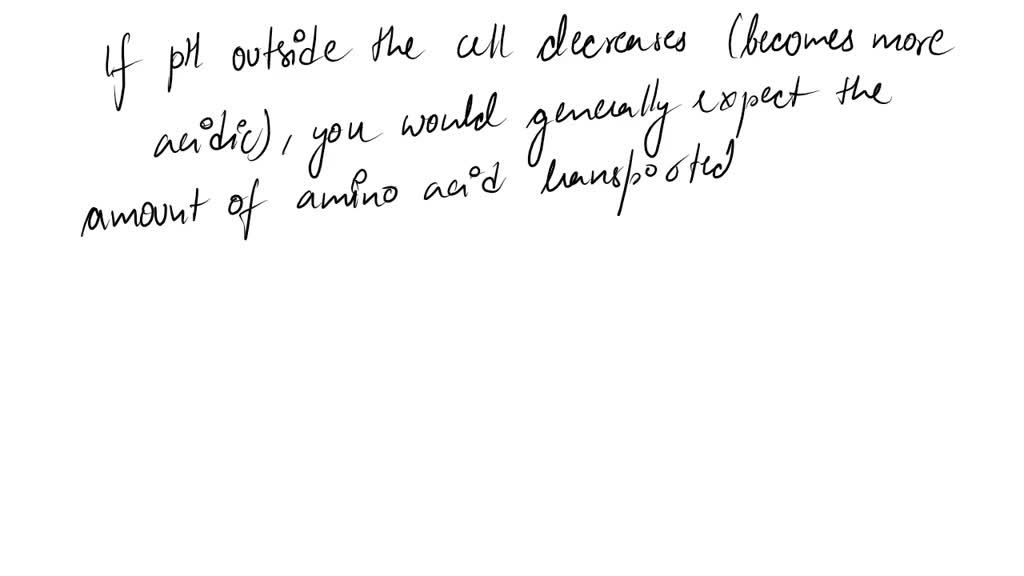 If pH outside the cell decreases (becomes more
acidic), you would generally expect the
amount of amino acid transported